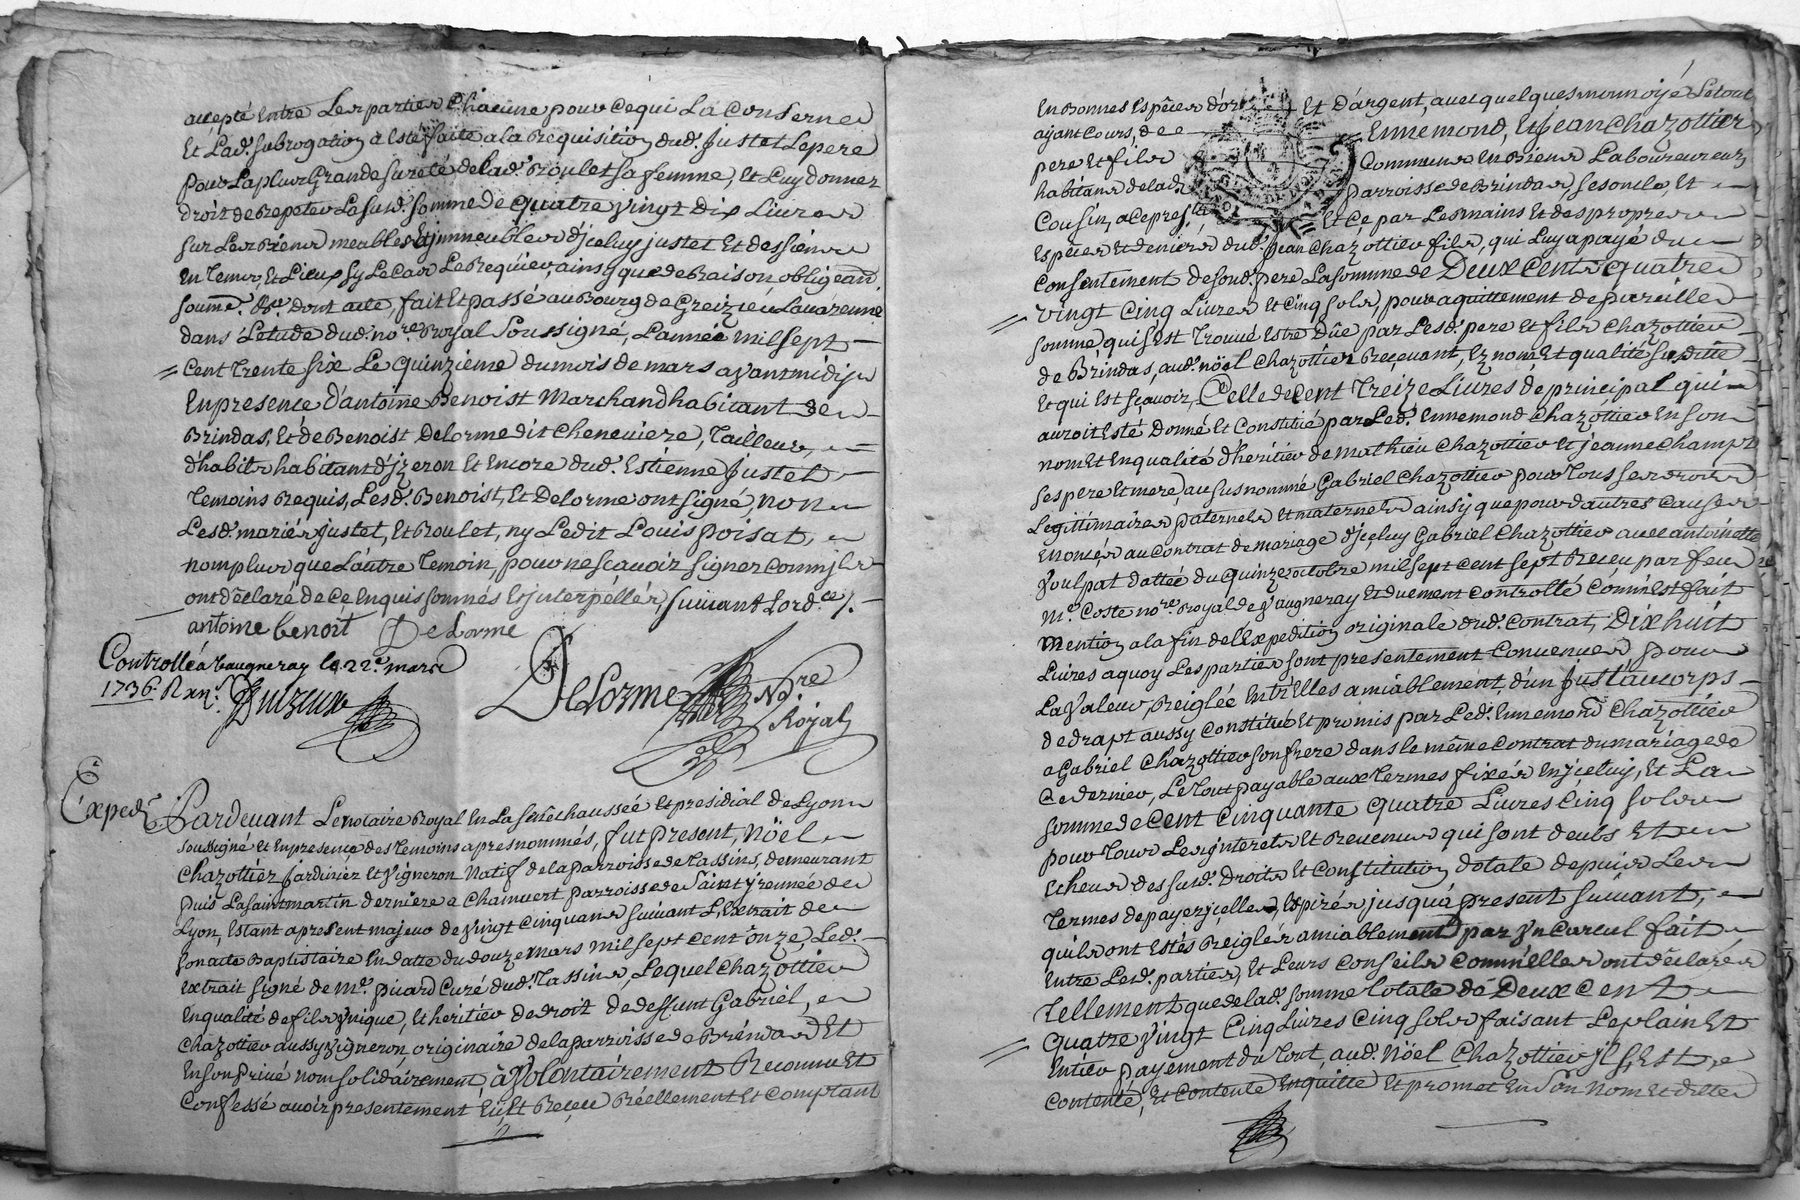 accepté Entre Les parties Chacune pour ce qui La Conserne
Et Lad. subrogation à Esté faite a la Requisition dud. Justet Le pere
pour La plus Grande sureté de lad. Roulet sa femme, Et Luy donner
droit de Repeter La susd. somme de quatre vingt Dix Livres
sur Les Biens meubles Et jmmeubles d'jceluy justet Et des siens
En Tems, Et Lieux sy Le Cas Le Requier, ainsy que de Raison obligeans.
soumet. &c. Dont acte, fait Et passé au Bourg de Greizieu Lavarenne
dans L'etude dud. nore. Royal Soussigné, L'année mil sept
Cent Trente six Le Quinzieme du mois de mars avant midy
En presence d'antoine Benoist Marchand habitant de
Brindas, Et de Benoist Delorme dit Cheneviere, Tailleur,
d'habits habitant d'jzeron Et Encore dud. Estienne Justet
Temoins Requis, Lesd. Benoist, Et Delorme ont signé, non
Lesd. mariés Justet, Et Roulet, ny Ledit Louis poisat,
nom plus que L'autre Temoin, pour ne scavoir signer comm'jls
ont declaré de ce Enquis sommés Et jnterpellés, suivant Lord.ce /.
antoine benoit Delorme
Controllé a Vaugneray le 22e mars
1736. R
Delorme Nore
Royal
Exped.
Pardevant Le notaire Royal En La senéchaussée Et presidial de Lyon
soussigné Et En presence des Temoins apres nommés, fut present, Nöel
Chazottier Jardinier Et vigneron Natif de la parroisse de Tassins, demeurant
Puis La saint martin derniere a Chainvert parroisse de Saint jrennée de
Lyon, Estant a present majeur de vingt cinq ans suivant L'Extrait de
son acte Baptistaire En datte du douze mars mil sept cent onze, Led.
Extrait signé de Mre. picard Curé dud. Tassins, Lequel Chazottier
En qualité de fils vnique, Et heritier de droit de deffunt Gabriel,
Chazottier aussy vigneron, originaire de la parroisse de Brendas Et
En son privé nom solidairement, à Volontairement Reconnu Et
Confessé avoir presentement Eu, Et Reçeu Réellement Et Comptant
En Bonnes Espêces d'or Et D'argent, avec quelques monnoijé Le tout
ayant Cours, de Ennemond, Et jean Chazottier
pere Et fils Communs En Biens Laboureureurs,
habitans de lad. parroisse de Brindas
Cousin, a ce presents, Et Ce par Les mains Et des propres
Espêces Et deniers dud. Jean Chazottier fils, qui Luy a payé du
Consentement de sond. pere La somme de Deux Cents quatre
vingt Cinq Livres Et Cinq sols, pour aquittement de pareille
somme qui s'Est Trouvé Estre Dûe par Lesd. pere Et fils Chazottier
de Brindas, aud. nöel Chazottier Reçevant, Ez nom Et qualité susditte
Et qui Est sçavoir, Celle de Cent Treize Livres de principal qui
auroit Esté Donné Et Constitué par Led. Ennemond Chazottier En son
nom Et En qualité d'heritier de mathieu Chazottier Et jeanne Champt
ses pere Et mere, au susnommé Gabriel Chazottier pour Tous ses droits
Legittimaires paternels Et maternels ainsy que pour d'autres Causes
Enoncés au Contrat de mariage d'jçeluy Gabriel Chazottier avec antoinette
Voulpat dattée du quinze octobre mil sept cent sept Reçeu par feu
Me. Coste nore. Royal de Vaugneray Et duement Controllé comm'Est fait
Mention a la fin de l'Expedition originale dud. Contrat, Dix huit
Livres a quoy Les parties sont presentement Convenues pour
La Valeur, Reiglée Entr'Elles amiablement, d'un Just'aucorps
de drapt aussy Constitué Et promis par Led. Ennemond Chazottier
a Gabriel Chazottier son frere dans le même Contrat du mariage de
Ce dernier, Le Tout payable aux Termes fixés En jçeluy, Et La
somme de Cent Cinquante quatre Livres Cinq sols
pour Tous Les jnterets Et Revenus qui sont deubs Et
Echeus des susd. Droits Et Constitution dotale depuis Les
Termes de payer jçelles, Expirés jusqu'à present suivant,
qu'ils ont Estés Reiglés amiablement par vn Careul fait
Entre Lesd. parties, Et Leurs Conseils comm'elles ont déclarés
Tellement que de lad. somme Totale de Deux Cent
Quatre Vingt Cinq Livres Cinq sols faisant Le plain Et
Entier payement du Tout, aud. Nöel Chazottier jl s'Est
Contenté, Et Contente En quitte Et promet En son Nom Et ditte